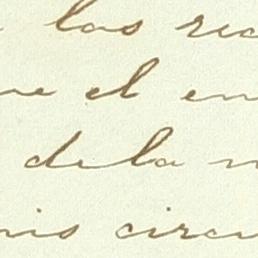 las rec
ue el en
de la n
nis circu